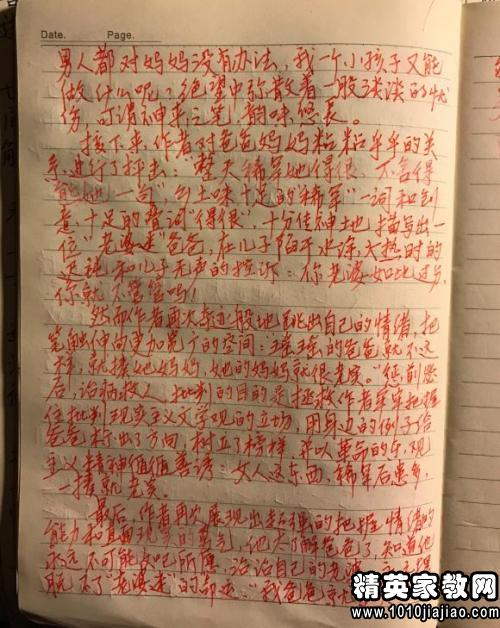 Date.    Page.
男人都对妈妈没有办法，我一个小孩子又能
做什么呢？绝望中弥散着一股淡淡的忧
伤，可谓神来之笔，韵味悠长。
接下来，作者对爸爸妈妈粘粘乎乎的关
系，进行了抨击："整天稀罕她得很，不舍得
她一气"，乡土味十足的"稀罕"一词和刻
意十足的赘词"得很"，十分传神地描写出一
位"老婆迷"爸爸，在儿子陷于水深火热时的
和儿子无声的控诉：你老婆如此过分，
你就不管管吗！
然而作者再次奇迹般地跳出自己的情绪，把
笔触伸向更加宽广的空间：瑶瑶的爸爸就不这
样，就揍她妈妈，她的妈妈就很老实。"惩前毖
后，治病救人，批判的目的是拯救作者牢牢把握
住批判现实主义文学观的立场，用身边的例子给
爸爸标出了方向，树立了榜样，并以革命的乐观
主义精神循循善诱：女人这东西，稀罕后患多，
一揍就老实。
最后，作者再次展现出超强的把握情绪的
能力和直面现实的勇气，他太了解爸爸了，知道他
永远不可能如己所愿，治治自己的老婆，
脱不了"老婆迷"的命运："我爸爸
精英家教网
www.1010jiajiao.com